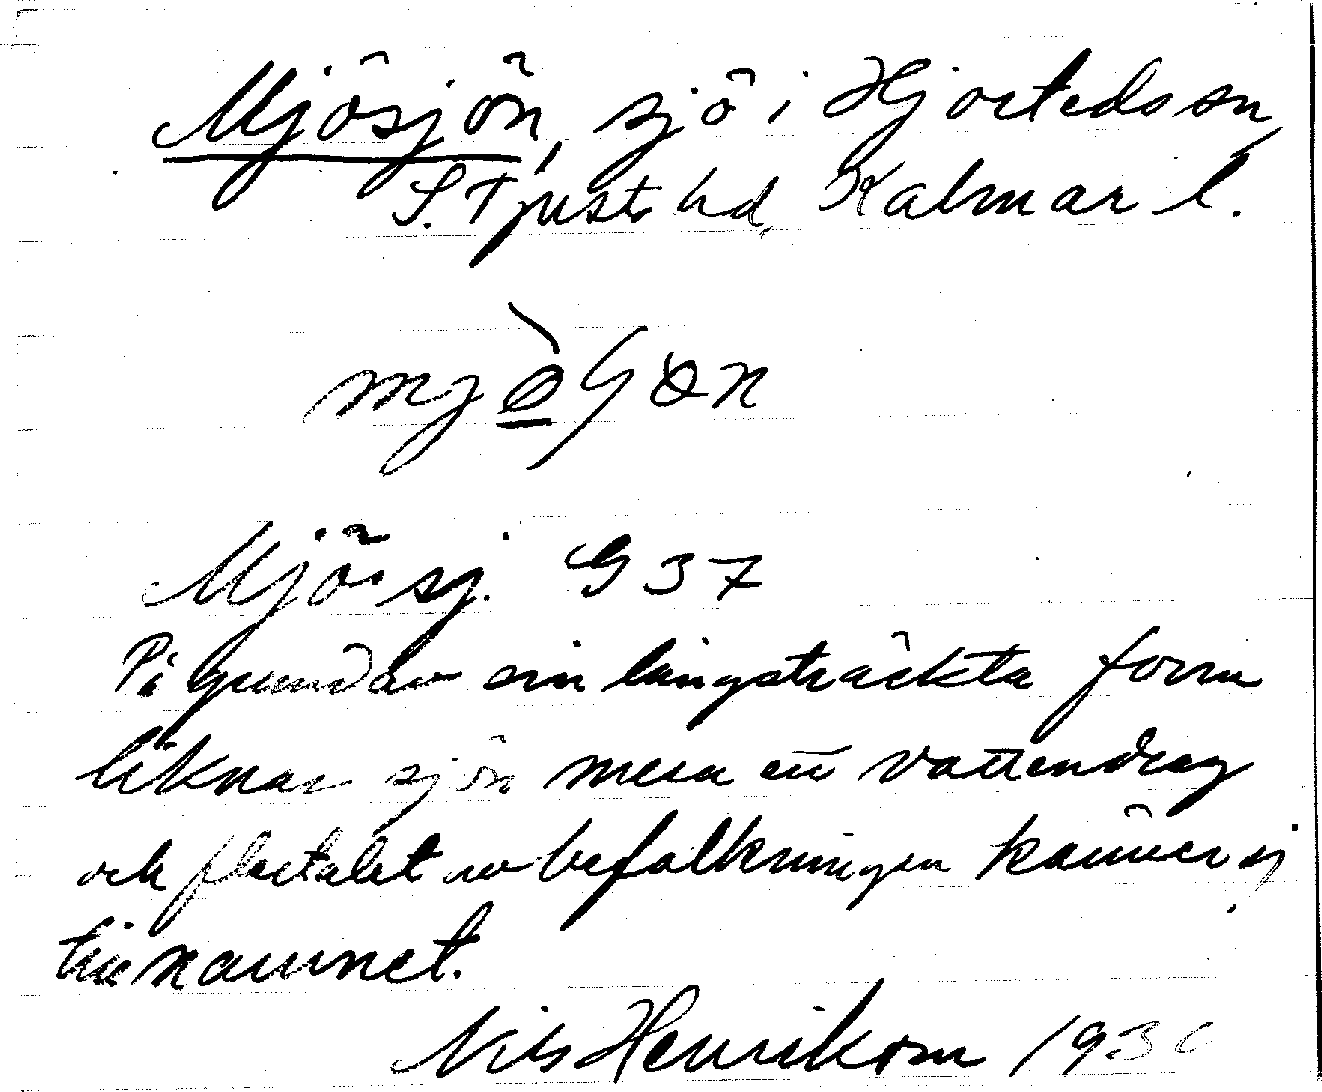 Mjösjön, sjö i Hjorteds sn,
S. Tjusts hd, Kalmar l.
Mjösj. G 37
På grund av sin långsträckta form
liknar sjön mera ett vattendrag
och flertalet av befolkningen känner ej
till namnet.
Nils Henrikson 1930